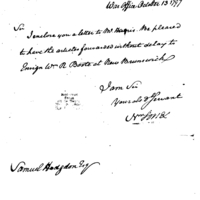 War Office October 13 1797
Sir
I enclose you a letter to Mr Harris. Be pleased
to have the articles forwarded without delay to
Ensign Wm R Boote at New Brunswick
I am Sir
Your obt Servant
Samuel Hodgdon Esq